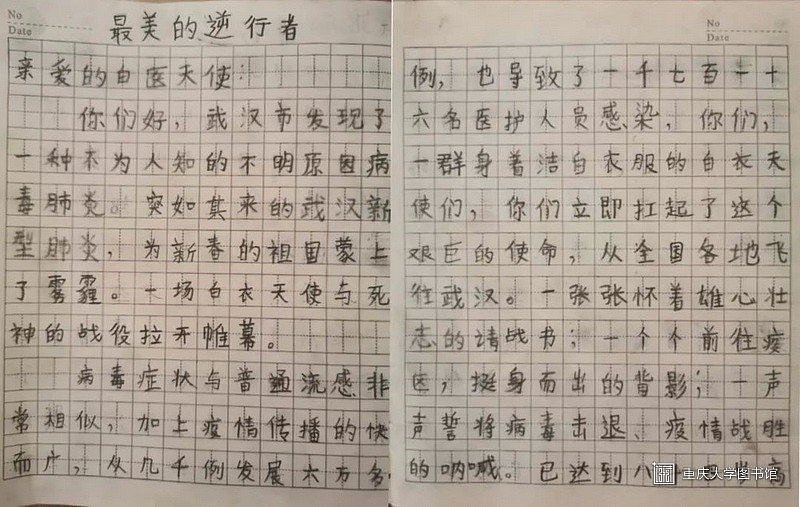 No
Date
最美的逆行者
亲爱的白医天使:
你们好,武汉市发现了
一种不为人知的不明原因病
毒肺炎。突如其来的武汉新
型肺炎,为新春的祖国蒙上
了雾霾。一场白衣天使与死
神的战役拉开帷幕。
病毒症状与普通流感非
常相似,加上疫情传播的快
而广,从几千例发展六万多
No
Date
例,也导致了一千七百一十
六名医护人员感染,你们,
一群身着洁白衣服的白衣天
使们,你们立即扛起了这个
艰巨的使命,从全国各地飞
往武汉。一张张怀着雄心壮
志的请战书;一个个前往疫
区,挺身而出的背影;一声
声誓将病毒击退、疫情战胜
的呐喊。已达到八
重庆大学图书馆